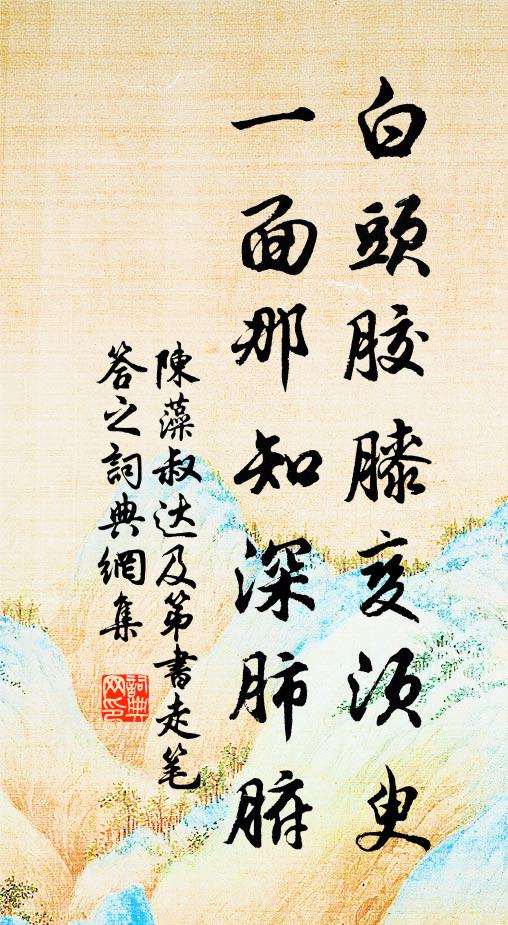 白頭胶膝变须臾
一面那知深肺腑
陳藻叔达及第書走笔
答之詞典網集
詞典
网印